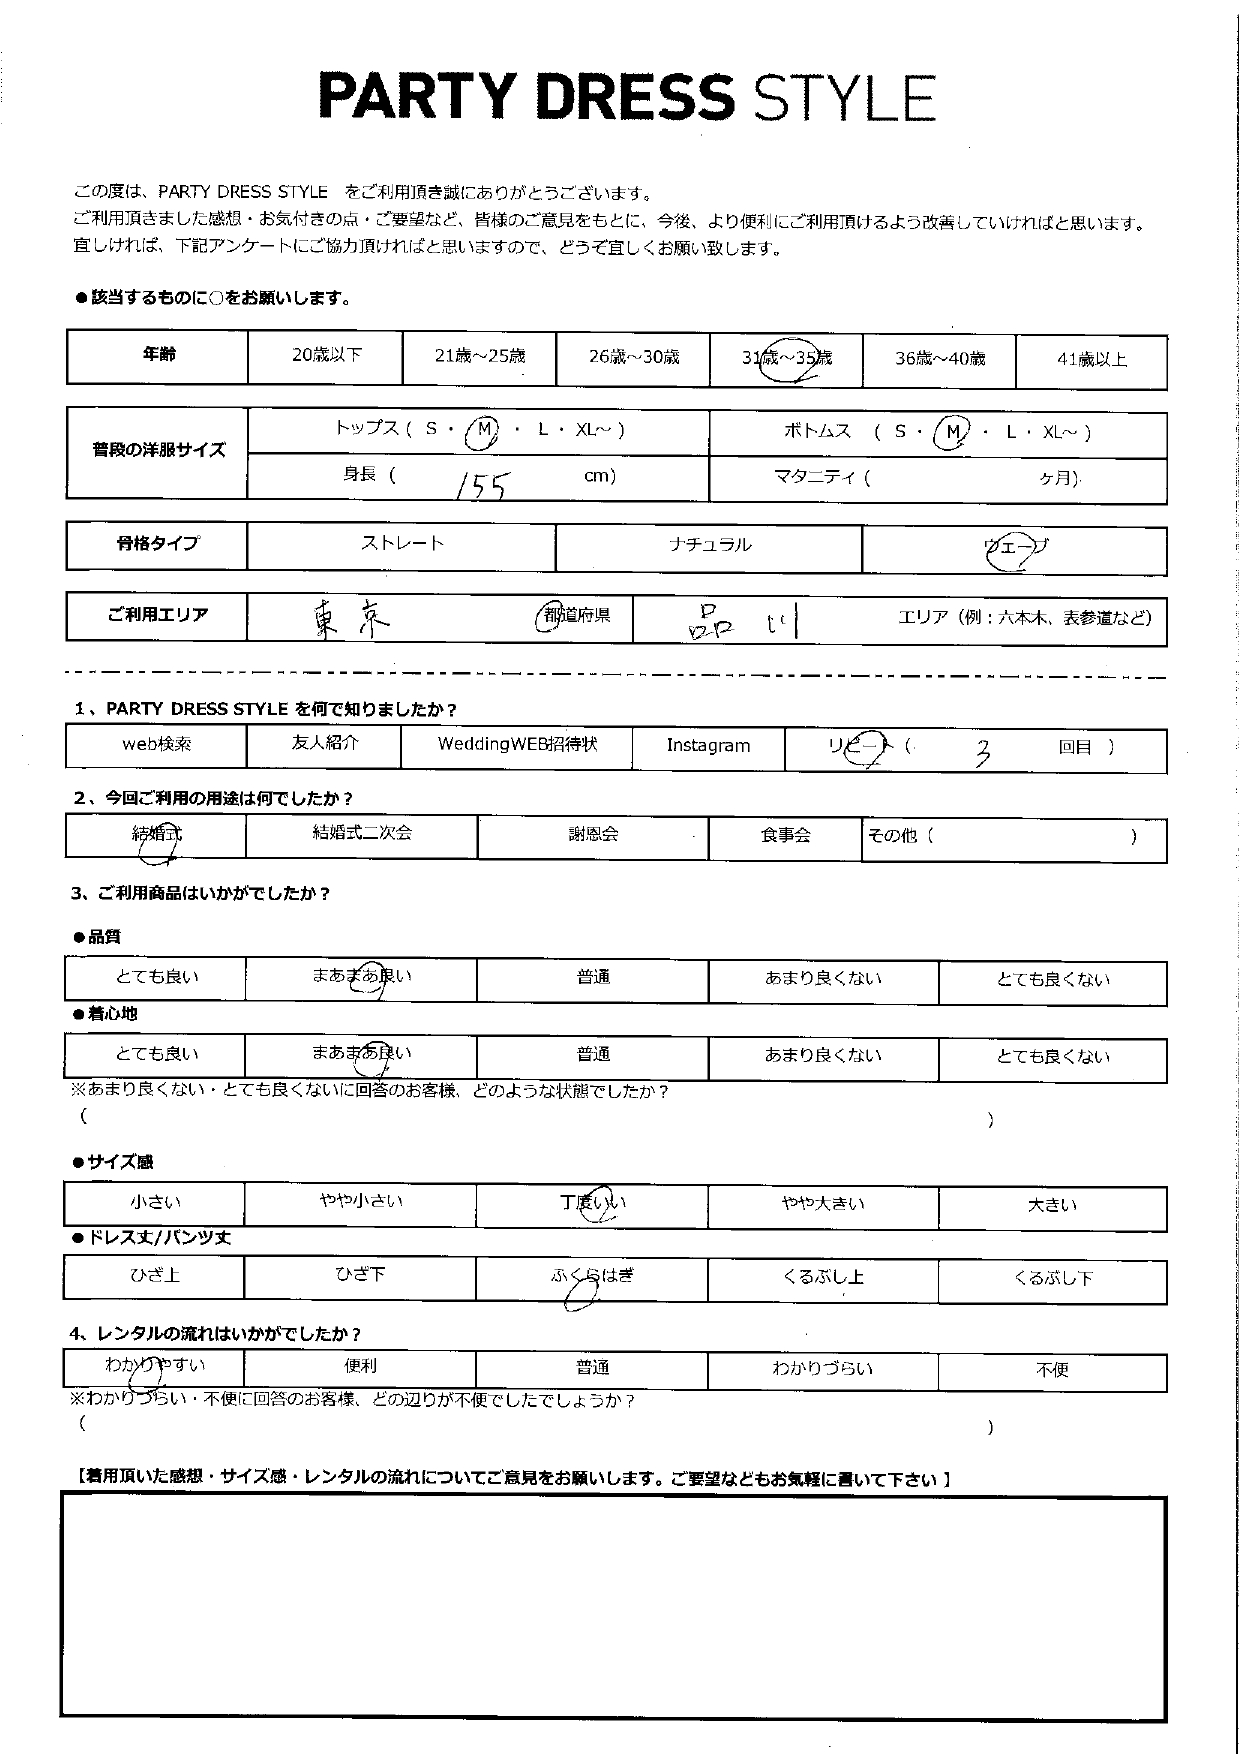 PARTY DRESS STYLE
この度は、PARTY DRESS STYLE をご利用頂き誠にありがとうございます。
ご利用頂きました感想・お気付きの点・ご要望など、皆様のご意見をもとに、今後、より便利にご利用頂けるよう改善していければと思います。
宜しければ、下記アンケートにご協力頂ければと思いますので、どうぞ宜しくお願い致します。
●該当するものに○をお願いします。
年齢 20歳以下 21歳～25歳 26歳～30歳 31歳～35歳 36歳～40歳 41歳以上
普段の洋服サイズ トップス ( S ・ M ・ L ・ XL～ ) ボトムス ( S ・ M ・ L ・ XL～ )
身長 ( 155 cm) マタニティ ( ヶ月)
骨格タイプ ストレート ナチュラル ウェーブ
ご利用エリア 東京 都道府県 品川 エリア（例：六本木、表参道など）
1、PARTY DRESS STYLE を何で知りましたか？
web検索 友人紹介 WeddingWEB招待状 Instagram リピート ( 3 回目 )
2、今回ご利用の用途は何でしたか？
結婚式 結婚式二次会 謝恩会 食事会 その他 ( )
3、ご利用商品はいかがでしたか？
●品質
とても良い まあまあ良い 普通 あまり良くない とても良くない
●着心地
とても良い まあまあ良い 普通 あまり良くない とても良くない
※あまり良くない・とても良くないに回答のお客様、どのような状態でしたか？
( )
●サイズ感
小さい やや小さい 丁度いい やや大きい 大きい
●ドレス丈/パンツ丈
ひざ上 ひざ下 ふくらはぎ くるぶし上 くるぶし下
4、レンタルの流れはいかがでしたか？
わかりやすい 便利 普通 わかりづらい 不便
※わかりづらい・不便に回答のお客様、どの辺りが不便でしたでしょうか？
( )
【着用頂いた感想・サイズ感・レンタルの流れについてご意見をお願いします。ご要望などもお気軽に書いて下さい 】